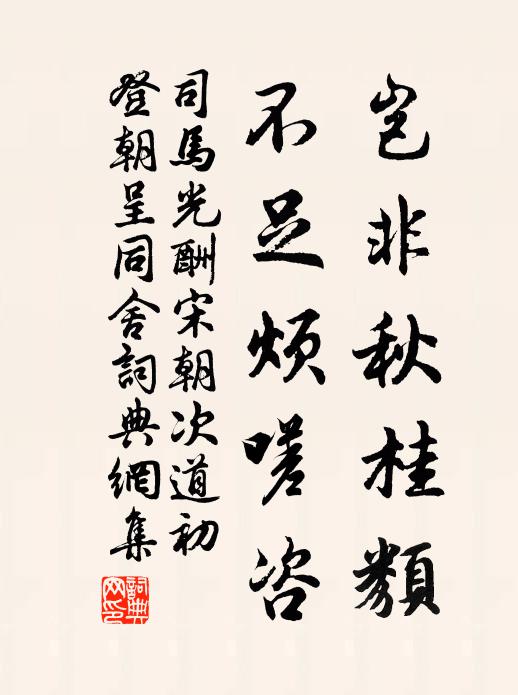 豈非秋桂類
不足煩嗟咨
司馬光酬宋朝次道初
登朝呈同舍詞典網集
詞典網印